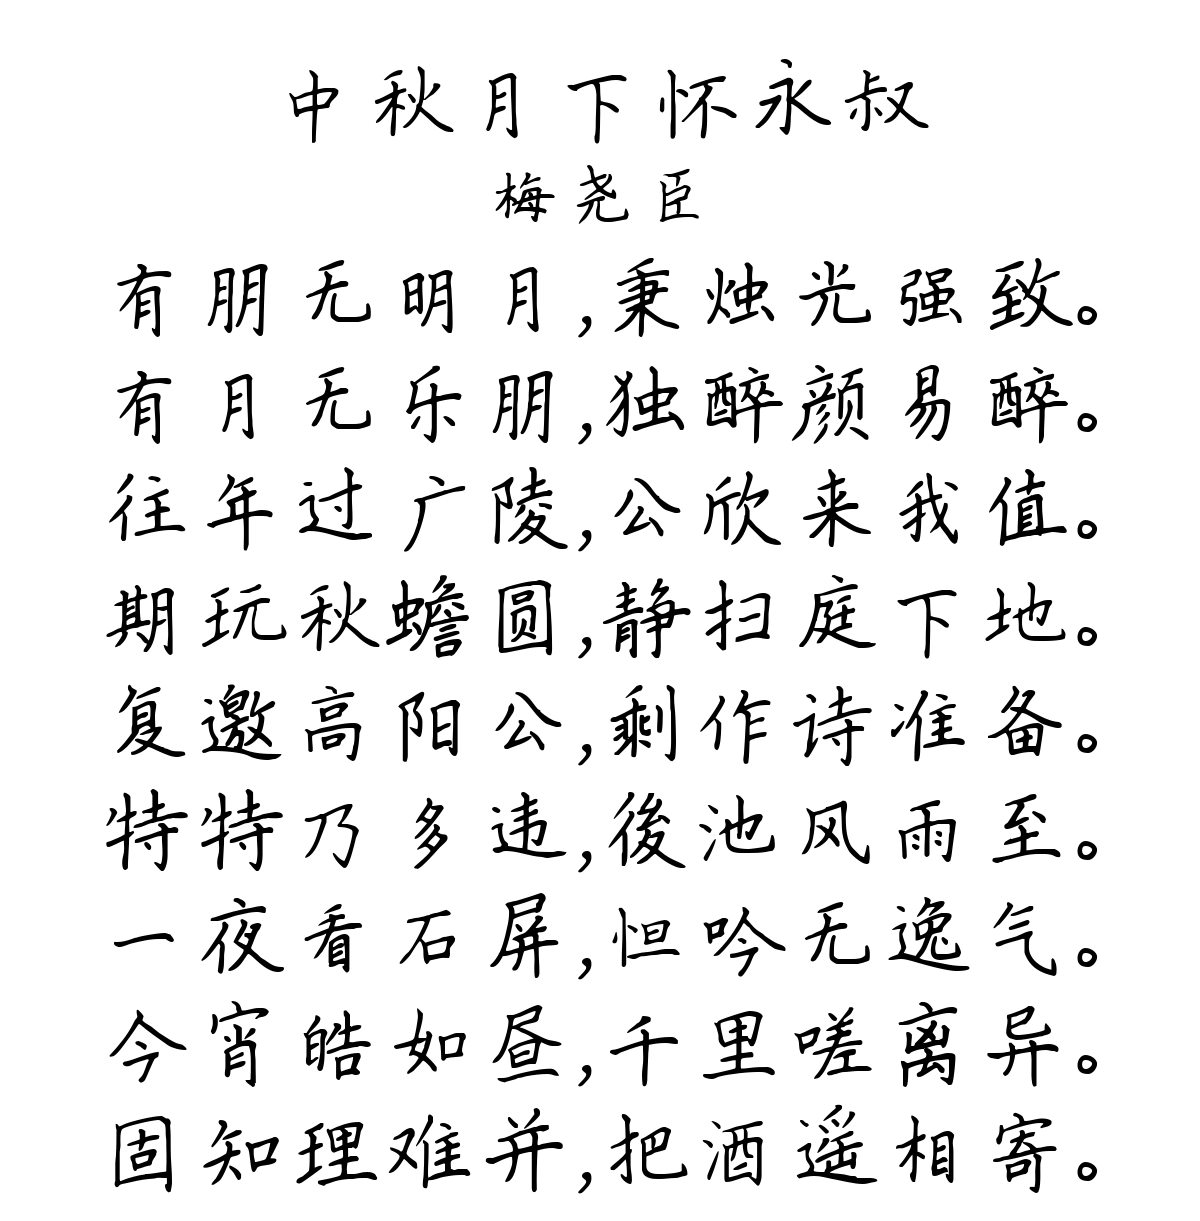 中秋月下怀永叔
梅尧臣
有朋无明月,秉烛光强致。
有月无乐朋,独醉颜易醉。
往年过广陵,公欣来我值。
期玩秋蟾圆,静扫庭下地。
复邀高阳公,剩作诗准备。
特特乃多违,後池风雨至。
一夜看石屏,怛吟无逸气。
今宵皓如昼,千里嗟离异。
固知理难并,把酒遥相寄。